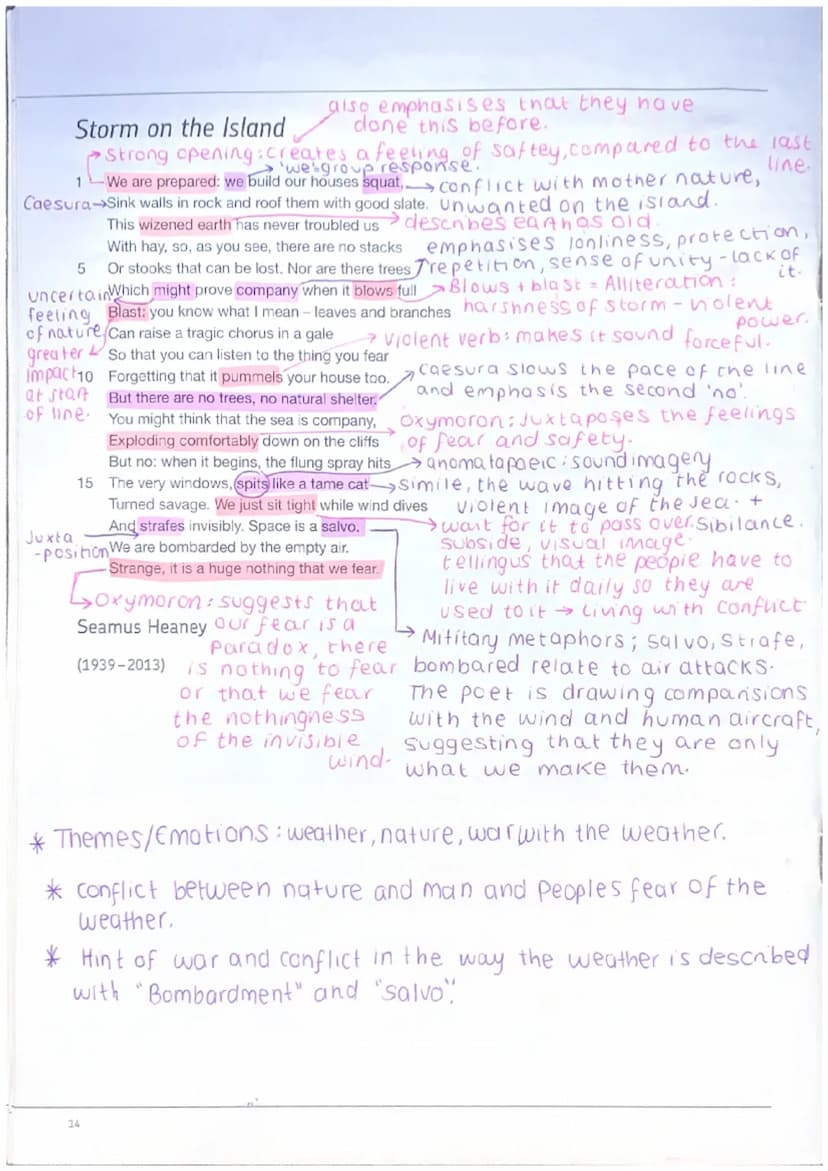 also emphasises that they have
done this before.
Storm on the Island
Strong opening: creates a feeling of saftey, compared to the last
line.
'we' group response.
1 We are prepared: we build our houses squat,
conflict with mother nature,
unwanted on the island.
Caesura
Sink walls in rock and roof them with good slate.
This wizened earth has never troubled us
describes earth as old.
With hay, so, as you see, there are no stacks
5 Or stooks that can be lost. Nor are there trees
emphasises lonliness, protection,
repetition, sense of unity - lack of
it.
Which might prove company when it blows full
Blast: you know what I mean – leaves and branches
Blows + blast = Alliteration:
harshness of storm - violent
power.
uncertain
feeling
of nature
Can raise a tragic chorus in a gale
So that you can listen to the thing you fear
violent verb: makes it sound forceful.
greater
impact
at start
of line.
10 Forgetting that it pummels your house too.
But there are no trees, no natural shelter.
caesura slows the pace of the line
and emphasis the second 'no'.
You might think that the sea is company,
Exploding comfortably down on the cliffs
oxymoron: Juxtaposes the feelings
of fear and safety.
But no: when it begins, the flung spray hits
anomatapaeic: sound imagery
15 The very windows, spits like a tame cat
Simile, the wave hitting the rocks,
violent image of the sea. +
Sibilance.
Turned savage. We just sit tight while wind dives
And strafes invisibly. Space is a salvo.
wait for it to pass over.
subside, visual image.
telling us that the people have to
live with it daily so they are
used to it → Living with conflict
Juxta
-position
We are bombarded by the empty air.
Strange, it is a huge nothing that we fear.
Oxymoron: suggests that
our fear is a
paradox, there
is nothing to fear
or that we fear
the nothingness
of the invisible
wind.
Seamus Heaney
(1939–2013)
Mititary metaphors; salvo, strafe,
bombared relate to air attacks.
The poet is drawing comparisions
with the wind and human aircraft,
suggesting that they are only
what we make them.
* Themes/Emotions: weather, nature, war with the weather.
* conflict between nature and man and Peoples fear of the
weather.
* Hint of war and conflict in the way the weather is described
with "Bombardment" and "salvo".
14